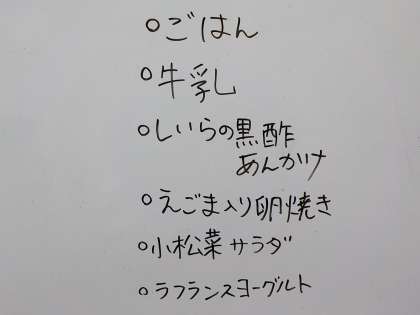 ○ごはん
○牛乳
○しいらの黒酢
あんかけ
○えごま入り卵焼き
○小松菜サラダ
○ラフランスヨーグルト